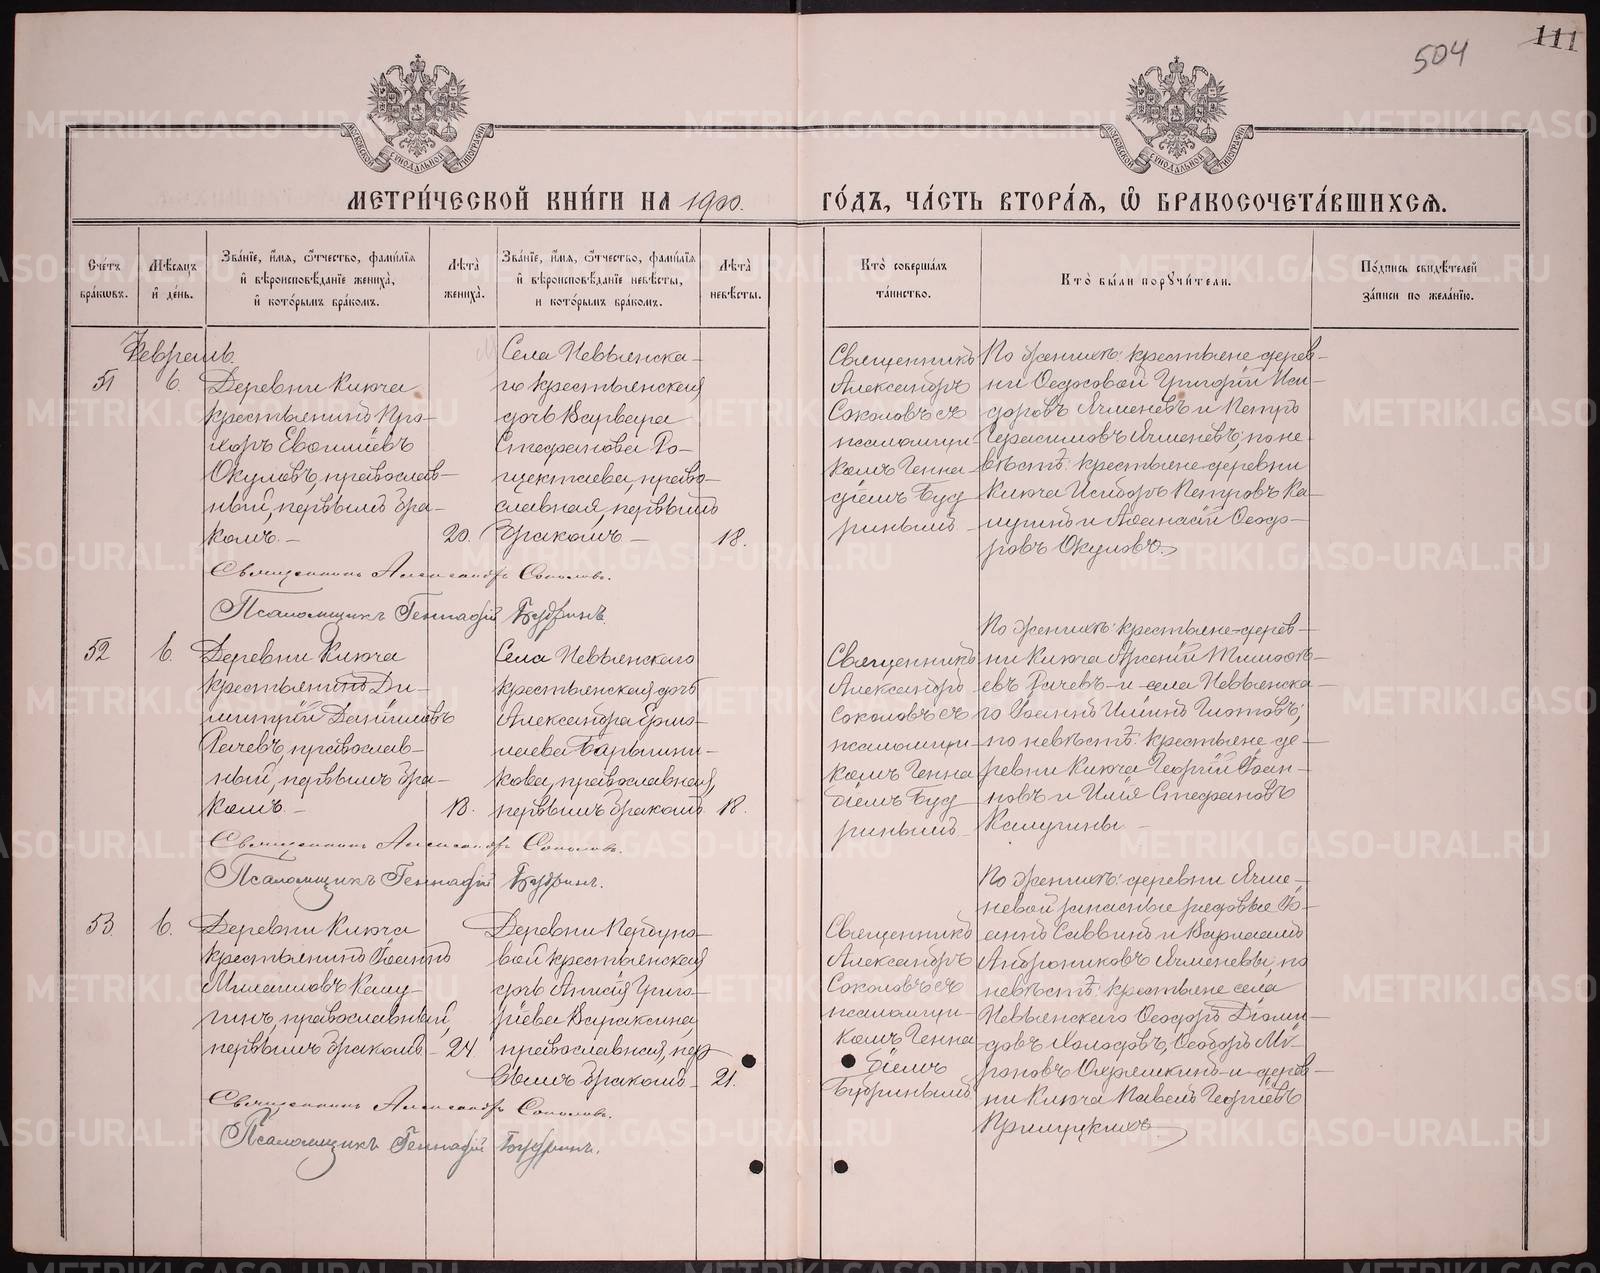 504
111
МОСКОВСКОЙ СѴНОДАЛЬНОЙ ТИПОГРАФІИ
МОСКОВСКОЙ СѴНОДАЛЬНОЙ ТИПОГРАФІИ
МЕТРИ́ЧЕСКОЙ КНИ́ГИ НА 1900.
ГО́ДЪ, ЧА́СТЬ ВТОРА́Ѧ, Ѽ БРАКОСОЧЕТА́ВШИХСѦ.
Сче́тъ бра́кωвъ.
Мѣ́сѧцъ и҆ де́нь.
Зва́нїе, и҆́мѧ, ѻ҆́тчество, фами́лїѧ и҆ вѣроисповѣ́данїе жениха̀, и҆ кото́рымъ бра́комъ.
Лѣ́та̀ жениха̀.
Зва́нїе, и҆́мѧ, ѻ҆́тчество, фами́лїѧ и҆ вѣроисповѣ́данїе невѣ́сты, и кото́рымъ бра́комъ.
Лѣ́та̀ невѣ́сты.
Кто̀ соверша́лъ та́инство.
Кто̀ бы́ли порꙋчи́тели.
По́дпись свидѣ́телей за́писи по жела́нїю.
Февраль
51
6.
Деревни Ключа
крестьянинъ Про-
хоръ Евѳимiевъ
Окуловъ, православ-
ный, первымъ бра-
комъ. -
20.
Села Невьянска-
го крестьянская
дочь Варвара
Стефанова Ро-
щектаева, право-
славная, первымъ
бракомъ -
18.
Священникъ
Александръ
Соколовъ съ
псаломщи-
комъ Генна-
дiемъ Буд
ринымъ
По женихѣ: крестьяне дерев-
ни Ѳедосовой Григорiй Иси-
доровъ Ячменевъ и Петръ
Герасимовъ Ячменевъ; по не-
вѣстѣ: крестьяне деревни
Ключа Исидоръ Петровъ Ка-
лугинъ и Аѳанасiй Ѳеодо-
ровъ Окуловъ.
Священникъ Александръ Соколовъ.
Псаломщикъ Геннадiй Будринъ.
52
6.
Деревни Ключа
крестьянинъ Ди-
митрiй Данiиловъ
Рычевъ, православ-
ный, первымъ бра-
комъ. -
18.
Села Невьянского
крестьянская дочь
Александра Ермо-
лаева Барышни-
кова, православная,
первымъ бракомъ
18.
Священникъ
Александръ
Соколовъ съ
псаломщи-
комъ Генна
дiемъ Буд
ринымъ
По женихѣ: крестьяне дерев-
ни Ключа Арсенiй Тимоѳѣ-
евъ Рычевъ и села Невьянска-
го Iоаннъ Илiинъ Глотовъ;
по невѣстѣ: крестьяне де-
ревни Ключа Георгiй Iоан-
новъ и Илiя Стефановъ
Калугины -
Священникъ Александръ Соколовъ.
Псаломщикъ Геннадiй Будринъ.
53
6.
Деревни Ключа
крестьянинъ Iоаннъ
Михаиловъ Калу-
гинъ, православный,
первымъ бракомъ
24.
Деревни
вой крестьянская
дочь Анисiя Григо-
рiева Вараксина,
православная, пер
вымъ бракомъ
21.
Священникъ
Александръ
Соколовъ съ
псаломщи-
комъ Генна
дiемъ
Будринымъ
По женихѣ: деревни Ячме-
невой запасные рядовые Iо-
аннъ Саввинъ и Варлаамъ
Андрониковъ Ячменевы, по
невѣстѣ: крестьяне села
Невьянского Ѳеодоръ Дiоми-
довъ Холодовъ, Ѳеодоръ Ми-
роновъ и дерев-
ни Ключа Павелъ Георгiевъ
Примуцкихъ.
Священникъ Александръ Соколовъ.
Псаломщикъ Геннадiй Будринъ.
METRIKI.GASO-URAL.RU